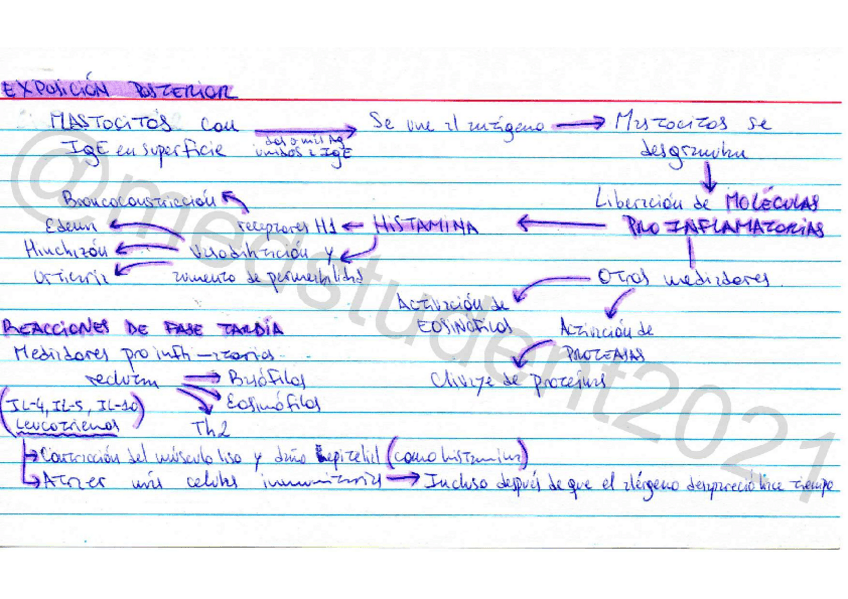 EXPOSICIÓN POSTERIOR
MASTOCITOS con IgE en superficie
dos o más Ag unidos a IgE
Se une al antígeno
Mastocitos se desgranulan
Liberación de MOLÉCULAS
PROINFLAMATORIAS
HISTAMINA
receptores H1
Broncoconstricción
Vasodilatación y
aumento de permeabilidad
Edema
Hinchazón
Urticaria
Otros mediadores
Activación de
EOSINÓFILOS
Activación de
PROTEASAS
Clivaje de proteínas
REACCIONES DE FASE TARDÍA
Mediadores proinflamatorios
reclutan
Basófilos
Eosinófilos
Th2
(IL-4, IL-5, IL-10)
Leucotrienos
Contracción del músculo liso y daño epitelial (como histamina)
Atraer más células inmunitarias
Incluso después de que el alérgeno desapareció hace tiempo
@medstudent2021